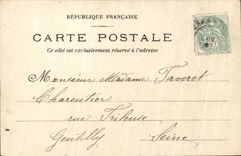 RÉPUBLIQUE FRANÇAISE
CARTE POSTALE
Ce côté est exclusivement réservé à l'adresse
Monsieur Madame Taveret
Charentier
rue
Gentilly Seine